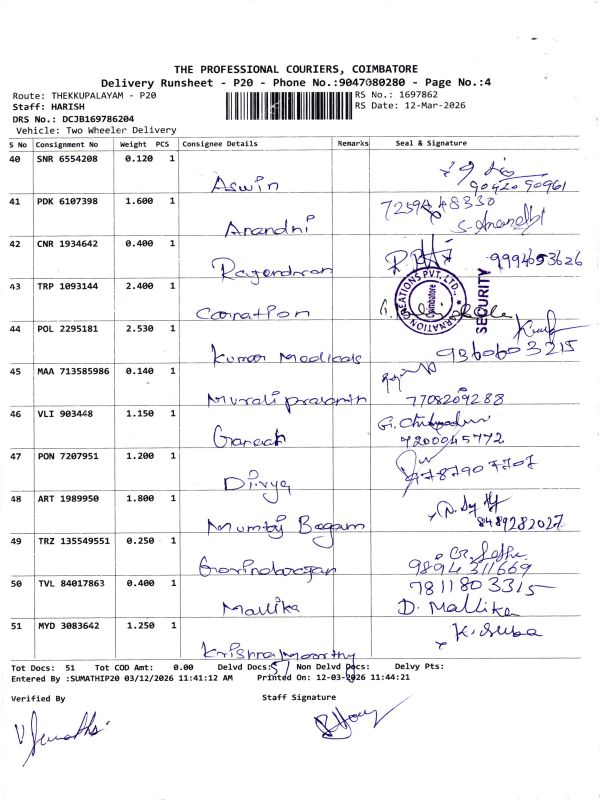 THE PROFESSIONAL COURIERS, COIMBATORE
Delivery Runsheet - P20 - Phone No.:9047080280 - Page No.:4
Route: THEKKUPALAYAM - P20 RS No.: 1697862
Staff: HARISH RS Date: 12-Mar-2026
DRS No.: DCJB169786204
Vehicle: Two Wheeler Delivery
S No Consignment No Weight PCS Consignee Details Remarks Seal & Signature
40 SNR 6554208 0.120 1
Aswin 90420 90961
41 PDK 6107398 1.600 1
Anandhi
42 CNR 1934642 0.400 1
Rajendran 9994653626
43 TRP 1093144 2.400 1
CARNATION CREATIONS PVT. LTD.,
Coimbatore
SECURITY
44 POL 2295181 2.530 1
Kumar Medicals 9360603215
45 MAA 713585986 0.140 1
Murali prasanth 7708209288
46 VLI 903448 1.150 1
Ganesh 7200045772
47 PON 7207951 1.200 1
Divya
48 ART 1989950 1.800 1
Mumtaj Begam 8489282027
49 TRZ 135549551 0.250 1
Govindarajan 9894311669
50 TVL 84017863 0.400 1 7811803315
Mallika D. Mallika
51 MYD 3083642 1.250 1 K. Suba
Krishnamoorthy
Tot Docs: 51 Tot COD Amt: 0.00 Delvd Docs: 51 Non Delvd Docs: Delvy Pts:
Entered By :SUMATHIP20 03/12/2026 11:41:12 AM Printed On: 12-03-2026 11:44:21
Verified By Staff Signature
V Sumathi